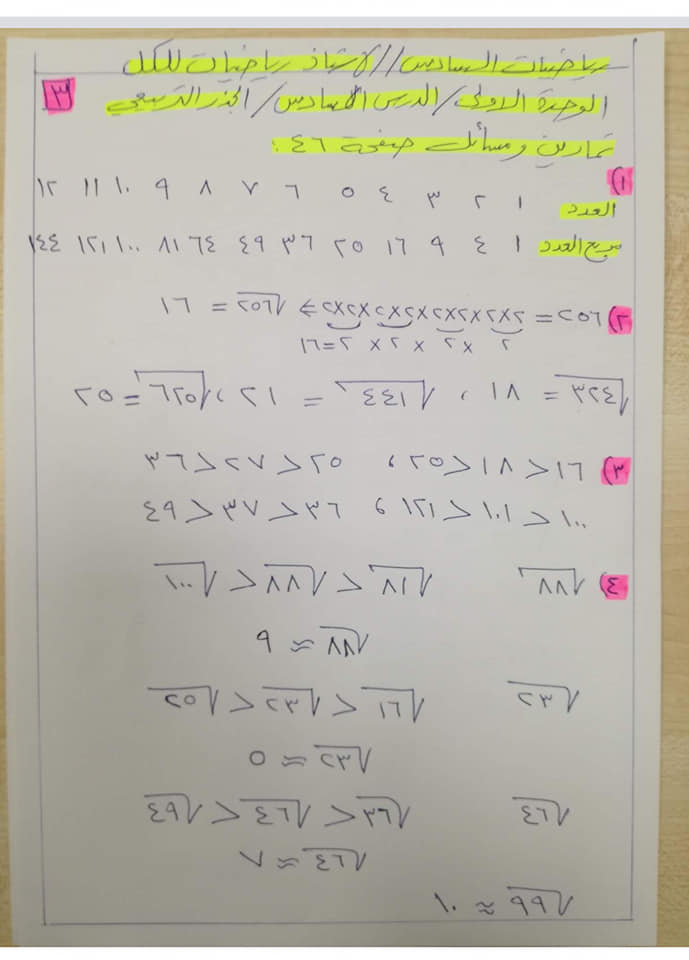 رياضيات السادس // الأستاذ رياضيات للكل
الوحدة الأولى / الدرس السادس / الجذر التربيعي ٣
تمارين ومسائل صفحة ٤٦ :
١)
العدد ١ ٢ ٣ ٤ ٥ ٦ ٧ ٨ ٩ ١٠ ١١ ١٢
مربع العدد ١ ٤ ٩ ١٦ ٢٥ ٣٦ ٤٩ ٦٤ ٨١ ١٠٠ ١٢١ ١٤٤
٢) ٢٥٦ = ٢×٢×٢×٢×٢×٢×٢×٢ ⇒ √٢٥٦ = ١٦
٢ × ٢ × ٢ × ٢ = ١٦
√٣٢٤ = ١٨ ، √٤٤١ = ٢١ ، √٦٢٥ = ٢٥
٣) ١٦ < ١٨ < ٢٥ ، ٢٥ < ٢٧ < ٣٦
١٠٠ < ١٠١ < ١٢١ ، ٣٦ < ٣٧ < ٤٩
٤) √٨٨ √٨١ < √٨٨ < √١٠٠
√٨٨ ≈ ٩
√٣٢ √١٦ < √٣٢ < √٢٥
√٣٢ ≈ ٥
√٤٦ √٣٦ < √٤٦ < √٤٩
√٤٦ ≈ ٧
√٩٩ ≈ ١٠